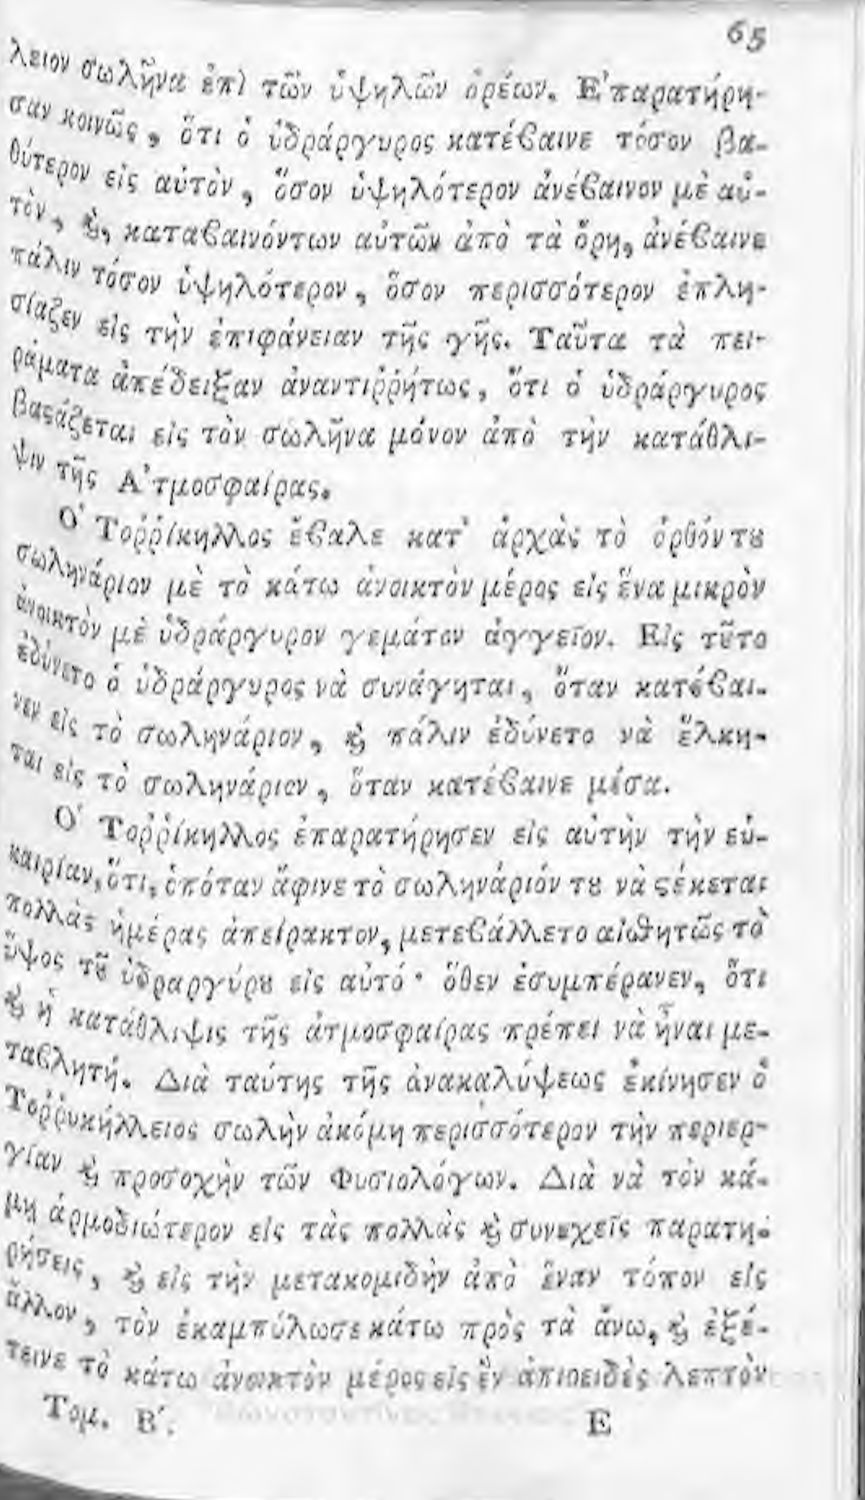 65
λειον σωλῆνα ἐπὶ τῶν ὑψηλῶν ὀρέων. Ἐπαρατήρη-
σαν κοινῶς, ὅτι ὁ ὑδράργυρος κατέβαινε τόσον βα-
θύτερον εἰς αὐτὸν, ὅσον ὑψηλότερον ἀνέβαινον μὲ αὐ-
τὸν, ϗ, καταβαινόντων αὐτῶν ἀπὸ τὰ ὄρη, ἀνέβαινε
πάλιν τόσον ὑψηλότερον, ὅσον περισσότερον ἐπλη-
σίαζεν εἰς τὴν ἐπιφάνειαν τῆς γῆς. Ταῦτα τὰ πει-
ράματα ἀπέδειξαν ἀναντιῤῥήτως, ὅτι ὁ ὑδράργυρος
βαϛάζεται εἰς τὸν σωλῆνα μόνον ἀπὸ τὴν κατάθλι-
ψιν τῆς Ἀτμοσφαίρας.
Ὁ Τοῤῥίκηλλος ἔβαλε κατ' ἀρχὰς τὸ ὀρθόν τȣ
σωληνάριον μὲ τὸ κάτω ἀνοικτὸν μέρος εἰς ἕνα μικρὸν
ἀνοικτὸν μὲ ὑδράργυρον γεμάτον ἀγγεῖον. Εἰς τȣ͂το
ἐδύνετο ὁ ὑδράργυρος νὰ συνάγηται, ὅταν κατέβαι-
νεν εἰς τὸ σωληνάριον, ϗ πάλιν ἐδύνετο νὰ ἕλκη-
ται εἰς τὸ σωληνάριον, ὅταν κατέβαινε μέσα.
Ὁ Τοῤῥίκηλλος ἐπαρατήρησεν εἰς αὐτὴν τὴν εὐ-
καιρίαν, ὅτι, ὁπόταν ἄφινε τὸ σωληνάριόν τȣ νὰ ϛέκεται
πολλὰς ἡμέρας ἀπείρακτον, μετεβάλλετο αἰσθητῶς τὸ
ὕψος τȣ͂ ὑδραργύρȣ εἰς αὐτό· ὅθεν ἐσυμπέρανεν, ὅτι
ϗ ἡ κατάθλιψις τῆς ἀτμοσφαίρας πρέπει νὰ ἦναι με-
ταβλητή. Διὰ ταύτης τῆς ἀνακαλύψεως ἐκίνησεν ὁ
Τοῤῥυκήλλειος σωλὴν ἀκόμη περισσότερον τὴν περιερ-
γίαν ϗ προσοχὴν τῶν Φυσιολόγων. Διὰ νὰ τὸν κά-
μῃ ἁρμοδιώτερον εἰς τὰς πολλὰς ϗ συνεχεῖς παρατη-
ρήσεις, ϗ εἰς τὴν μετακομιδὴν ἀπὸ ἕναν τόπον εἰς
ἄλλον, τὸν ἐκαμπύλωσε κάτω πρὸς τὰ ἄνω, ϗ ἐξέ-
τεινε τὸ κάτω ἀνοικτὸν μέρος εἰς ἓν ἀπιοειδὲς λεπτὸν
Τομ. Β΄. Ε